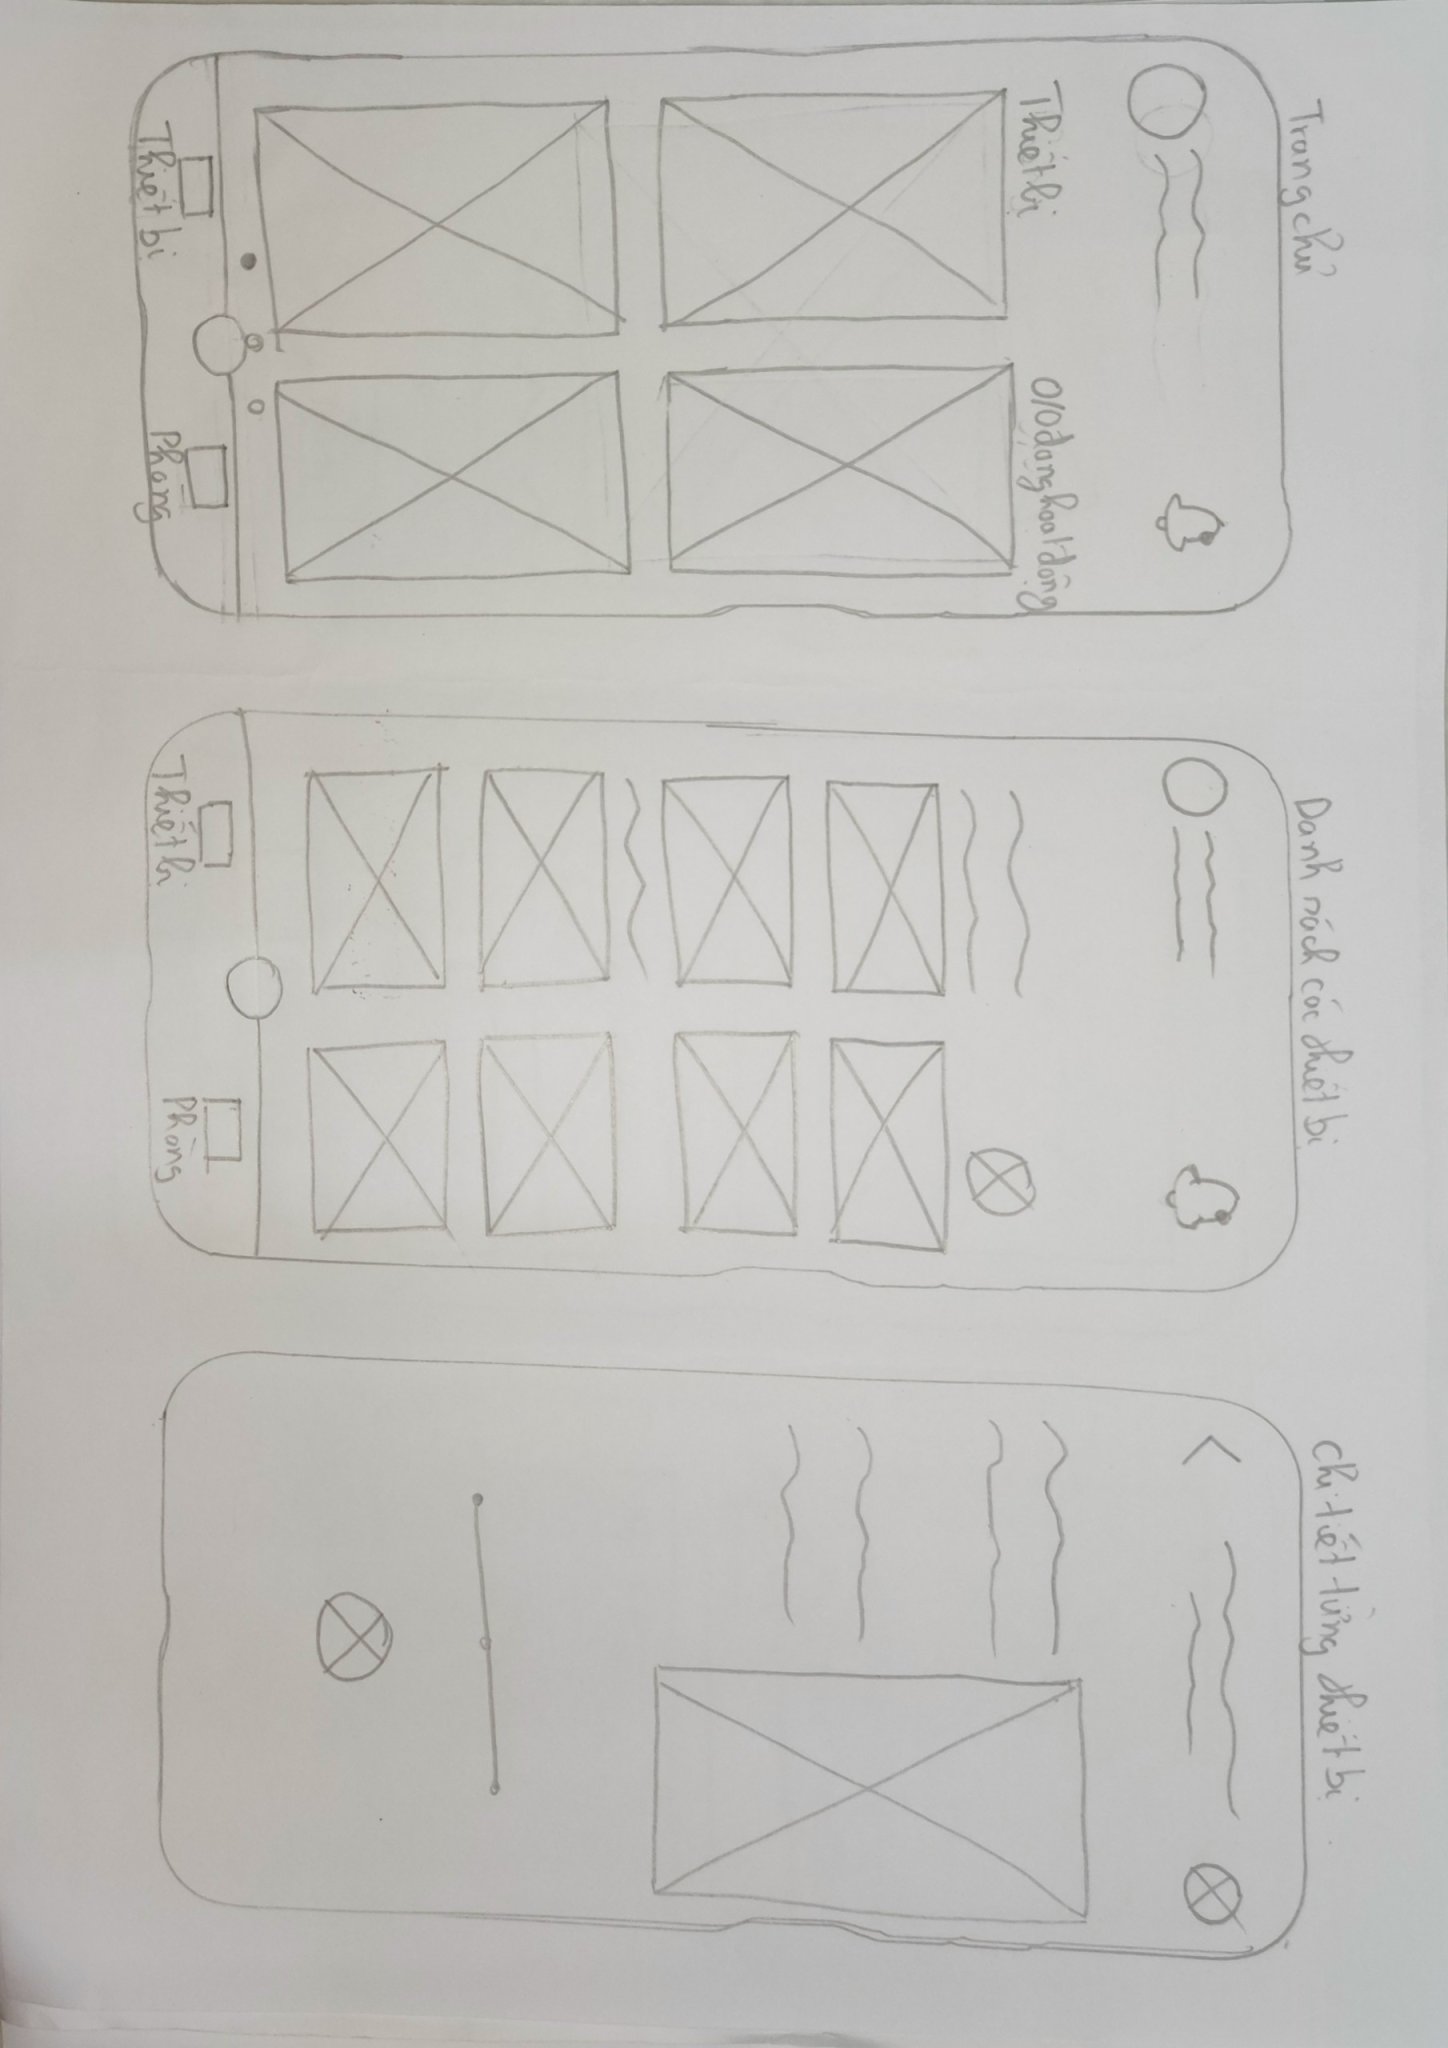 Trang chủ
Thiết bị
0/0 đang hoạt động
Thiết bị
Phòng
Danh sách các thiết bị
Thiết bị
Phòng
Chi tiết từng thiết bị